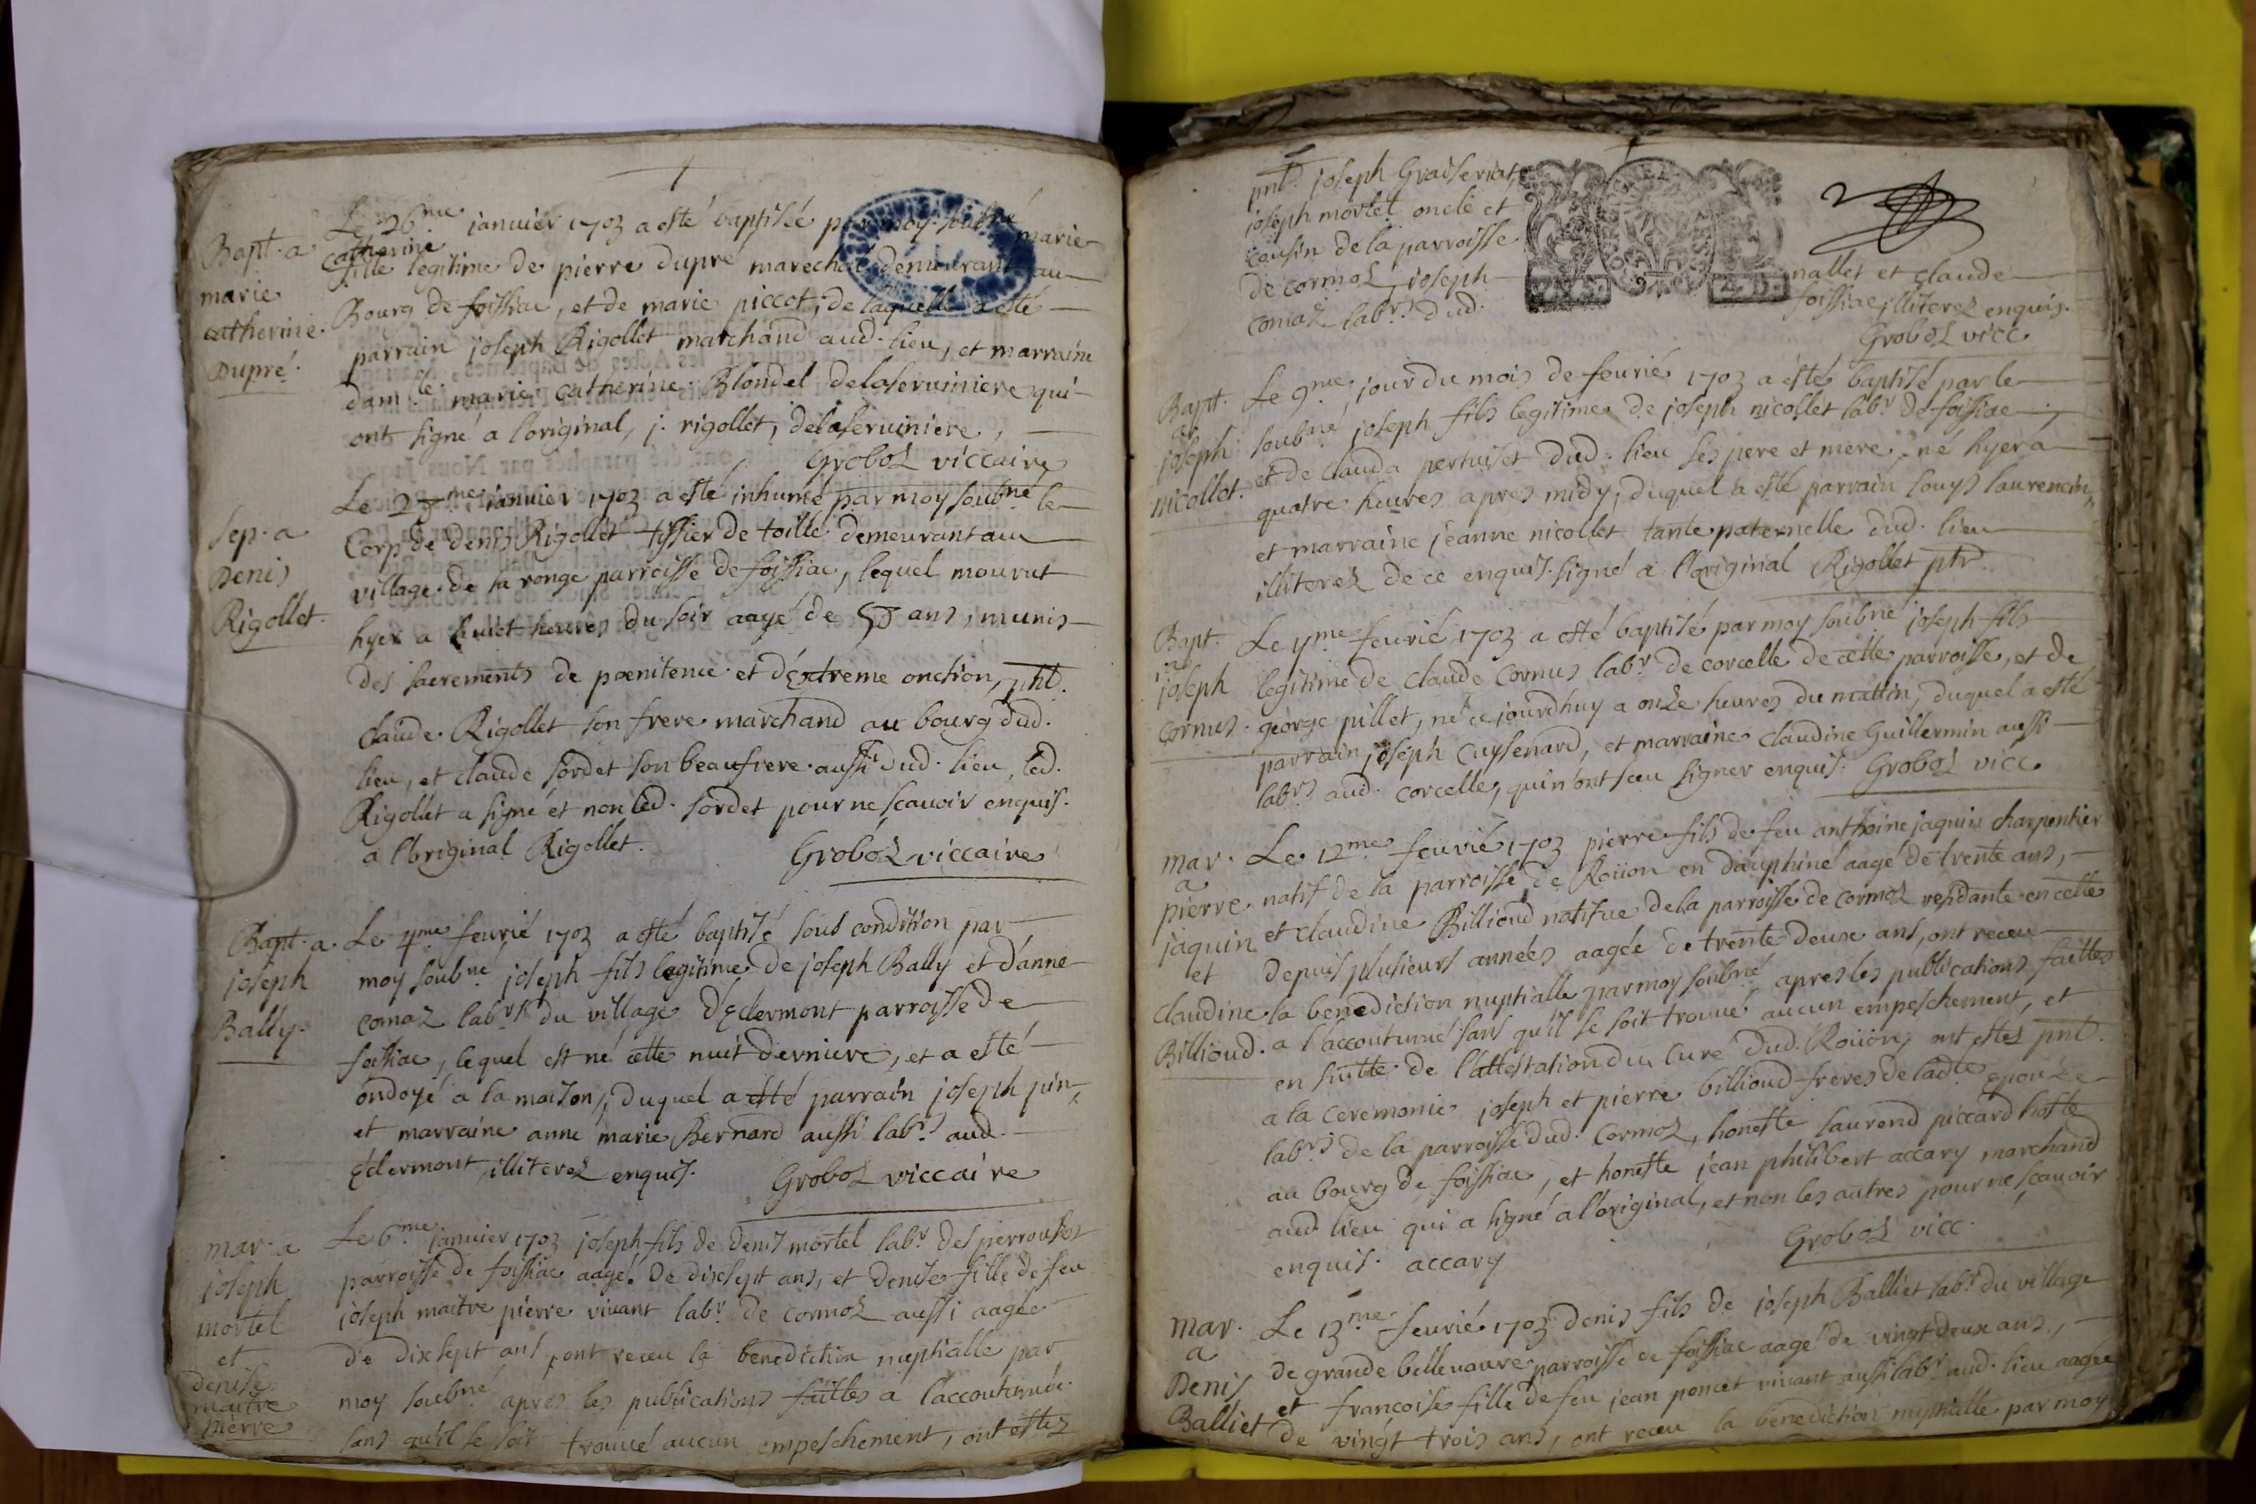 Bapt. a
marie
catherine
Dupré.
Le 26me janvier 1703 a esté baptisée par moy soubné marie
catherine
fille legitime de pierre dupré marechal demeurant au
Bourg de foissiac, et de marie piccot, de laquelle a esté
parrain joseph Rigollet marchand aud. lieu, et marraine
dam.le marie catherine Blondel delaserviniere qui
ont signé a l'original, j. rigollet, delaserviniere,
Groboz viccaire
Sep. a
Denis
Rigollet.
Le janvier 1703 a esté inhumé par moy soubné le
Corp de denis Rigollet tissier de toille demeurant au
village de la ronge parroisse de foissiac, lequel mourut
hyer a huict heures du soir aagé de ans, munis
des sacrements de poenitence et d'extreme onction, pnt.
claude Rigollet son frere marchand au bourg dud.
lieu, et claude sordet son beaufrere aussi dud. lieu, led.
Rigollet a signé et non led. sordet pour ne scauoir enquis.
a l'original Rigollet. Groboz viccaire
Bapt. a
joseph
Bally.
Le 4me feurié 1703 a esté baptisé sous condition par
moy soubné joseph fils legitime de joseph Bally et d'anne
comaz labrs du village d'Eclermont parroisse de
foissiac, lequel est né cette nuit derniere, et a esté
ondoyé a la maison, duquel a esté parrain joseph pin,
et marraine anne marie Bernard aussi labrs aud.
Eclermont, illiterez enquis. Groboz viccaire
mar. a
joseph
mortel
et
denise
maitre
pierre
Le 6me janvier 1703 joseph fils de denis mortel labr des perrouses
parroisse de foissiac aagé de dixsept ans, et denise fille de feu
joseph maitre pierre vivant labr de cormoz aussi aagée
de dixsept ans, ont receu la benediction nuptialle par
moy soubné apres les publications faittes a l'accoutumée
sans qu'il se soit trouué aucun empeschement, ont estez
pnt. joseph
joseph mortel oncle et
cousin de la parroisse
de cormoz, joseph nallet et claude
comaz labrs dud. foissiac, illiterez enquis.
Groboz vicc.
Bapt.
a
joseph
nicollet.
Le 9me jour du mois de feurié 1703 a esté baptisé par le
soubné joseph fils legitime de joseph nicollet labr de foissiac
et de clauda pertuiset dud. lieu ses pere et mere, né hyer a
quatre heures apres midy, duquel a esté parrain louys laurencin,
et marraine jeanne nicollet tante paternelle dud. lieu
illiterez de ce enquis. signé a l'original Rigollet ptr.
Bapt.
a
joseph
cornus.
Le feurié 1703 a esté baptisé par moy soubné joseph fils
legitime de claude Cornus labr de corcelle de cette parroisse, et de
george pillet, né ce jourdhuy a onze heures du mattin, duquel a esté
parrain joseph Cuysenard, et marraine claudine Guillermin aussi
labrs aud. corcelle, qui n'ont sceu signer enquis. Groboz vicc.
mar.
a
pierre
jaquin
et
claudine
Billioud.
Le 12me feurié 1703 pierre fils de feu anthoine jaquin charpentier
natif de la parroisse de Roüon en dauphiné aagé de trente ans,
et claudine Billioud natifue de la parroisse de cormoz residante en celle
depuis plusieurs années aagée de trente deux ans, ont receu
la benediction nuptialle par moy soubné apres les publications faittes
a l'accoutumé sans qu'il se soit trouué aucun empeschement, et
en suitte de l'attestation du curé dud. Roüon, ont estez pnt.
a la ceremonie joseph et pierre billioud freres de ladte epouze
labrs de la parroisse dud. Cormoz, honeste laurend piccard hoste
au bourg de foissiac, et honeste jean philibert accary marchand
aud. lieu qui a signé a l'original, et non les autres pour ne scauoir
enquis. accary Groboz vicc.
mar.
a
Denis
Balliet
Le 13me feurié 1703 denis fils de joseph Balliet labr du village
de grande belleuauvre parroisse de foissiac aagé de vingt deux ans,
et francoise fille de feu jean poncet vivant aussi labr aud. lieu aagée
de vingt trois ans, ont receu la benediction nuptialle par moy